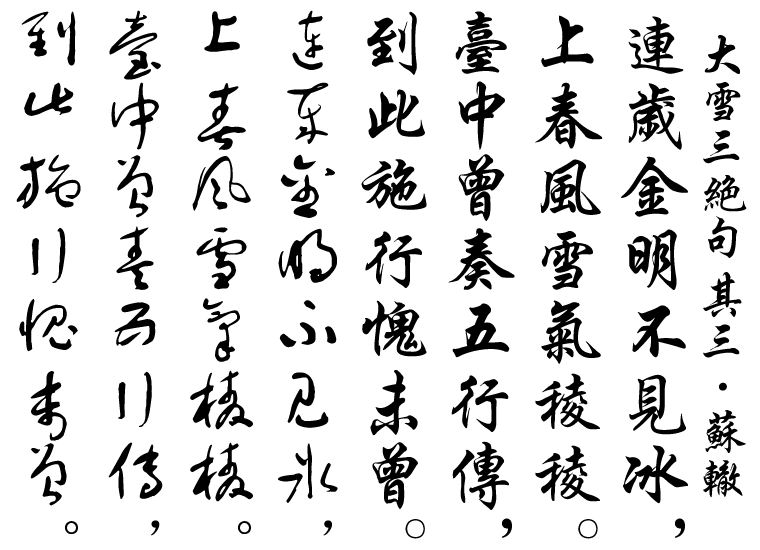 大雪三絕句其三·蘇轍
連歲金明不見冰，
上春風雪氣稜稜。
臺中曾奏五行傳，
到此施行愧未曾。
連歲金明不見冰，
上春風雪氣稜稜。
臺中曾奏五行傳，
到此施行愧未曾。